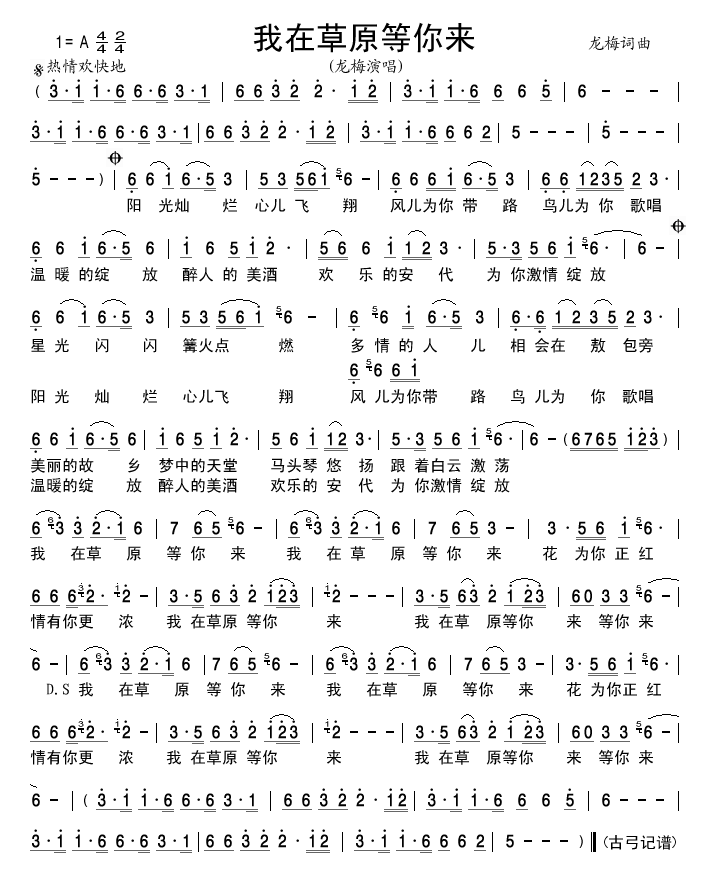 我在草原等你来
1=A 4/4 2/4
龙梅词曲
热情欢快地
(龙梅演唱)
( 3·1 1·6 6·6 3·1 | 6 6 3 2 2·1 2 | 3·1 1·6 6 6 5 | 6 - - - |
3·1 1·6 6·6 3·1 | 6 6 3 2 2·1 2 | 3·1 1·6 6 6 2 | 5 - - - | 5 - - - |
5 - - - ) | 6 6 1 6·5 3 | 5 3 5 6 1 5 6 - | 6 6 6 1 6·5 3 | 6 6 1 2 3 5 2 3· |
阳 光灿 烂 心儿 飞 翔 风儿为你 带 路 鸟儿为 你 歌唱
6 6 1 6·5 6 | 1 6 5 1 2· | 5 6 6 1 1 2 3· | 5·3 5 6 1 5 6· | 6 - |
温 暖 的绽 放 醉人 的 美酒 欢 乐 的安 代 为 你激情 绽 放
6 6 1 6·5 3 | 5 3 5 6 1 5 6 - | 6 5 6 1 6·5 3 | 6·6 1 2 3 5 2 3· |
星 光 闪 闪 篝火点 燃 多 情 的 人 儿 相 会在 敖 包旁
6 5 6 6 1
阳 光 灿 烂 心儿飞 翔 风 儿为你带 路 鸟 儿为 你 歌唱
6 6 1 6·5 6 | 1 6 5 1 2· | 5 6 1 1 2 3· | 5·3 5 6 1 5 6· | 6 - ( 6 7 6 5 1 2 3 ) |
美丽的故 乡 梦中的天堂 马头琴 悠 扬 跟 着白云 激 荡
温暖的绽 放 醉人的美酒 欢乐的 安 代 为 你激情 绽 放
6 6 3 3 2·1 6 | 7 6 5 5 6 - | 6 6 3 3 2·1 6 | 7 6 5 3 - | 3·5 6 1 5 6· |
我 在草 原 等 你 来 我 在 草 原 等 你 来 花 为你 正 红
6 6 6 3 2· 1 2 - | 3·5 6 3 2 1 2 3 | 1 2 - - - | 3·5 6 3 2 1 2 3 | 6 0 3 3 5 6 - |
情有你更 浓 我 在草原 等你 来 我 在 草 原等你 来 等你 来
6 - | 6 6 3 3 2·1 6 | 7 6 5 5 6 - | 6 6 3 3 2·1 6 | 7 6 5 3 - | 3·5 6 1 5 6· |
D.S 我 在草 原 等 你 来 我 在草 原 等你 来 花 为你正 红
6 6 6 3 2· 1 2 - | 3·5 6 3 2 1 2 3 | 1 2 - - - | 3·5 6 3 2 1 2 3 | 6 0 3 3 5 6 - |
情有你更 浓 我 在草原 等你 来 我 在 草 原等你 来 等你 来
6 - | ( 3·1 1·6 6·6 3·1 | 6 6 3 2 2·1 2 | 3·1 1·6 6 6 5 | 6 - - - |
3·1 1·6 6·6 3·1 | 6 6 3 2 2·1 2 | 3·1 1·6 6 6 2 | 5 - - - ) ‖ (古弓记谱)